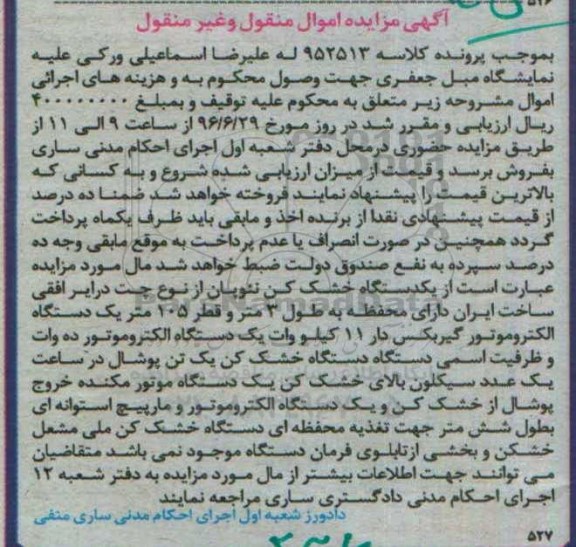 ۵۲۶
آگهی مزایده اموال منقول وغیر منقول
بموجب پرونده کلاسه ۹۵۲۵۱۳ له علیرضا اسماعیلی ورکی علیه
نمایشگاه مبل جعفری جهت وصول محکوم به و هزینه های اجرائی
اموال مشروحه زیر متعلق به محکوم علیه توقیف و بمبلغ ۴۰۰۰۰۰۰۰۰
ریال ارزیابی و مقرر شد در روز مورخ ۹۶/۶/۲۹ از ساعت ۹ الی ۱۱ از
طریق مزایده حضوری درمحل دفتر شعبه اول اجرای احکام مدنی ساری
بفروش برسد و قیمت از میزان ارزیابی شده شروع و به کسانی که
بالاترین قیمت را پیشنهاد نمایند فروخته خواهد شد ضمنا ده درصد
از قیمت پیشنهادی نقدا از برنده اخذ و مابقی باید ظرف یکماه پرداخت
گردد همچنین در صورت انصراف یا عدم پرداخت به موقع مابقی وجه ده
درصد سپرده به نفع صندوق دولت ضبط خواهد شد مال مورد مزایده
عبارت است از یکدستگاه خشک کن نئوپان از نوع جت درایر افقی
ساخت ایران دارای محفظه به طول ۳ متر و قطر ۱۰۵ متر یک دستگاه
الکتروموتور گیربکس دار ۱۱ کیلو وات یک دستگاه الکتروموتور ده وات
و ظرفیت اسمی دستگاه دستگاه خشک کن یک تن پوشال در ساعت
یک عدد سیکلون بالای خشک کن یک دستگاه موتور مکنده خروج
پوشال از خشک کن و یک دستگاه الکتروموتور و مارپیچ استوانه ای
بطول شش متر جهت تغذیه محفظه ای دستگاه خشک کن ملی مشعل
خشکن و بخشی ازتابلوی فرمان دستگاه موجود نمی باشد متقاضیان
می توانند جهت اطلاعات بیشتر از مال مورد مزایده به دفتر شعبه ۱۲
اجرای احکام مدنی دادگستری ساری مراجعه نمایند
دادورز شعبه اول اجرای احکام مدنی ساری منفی
۵۲۷